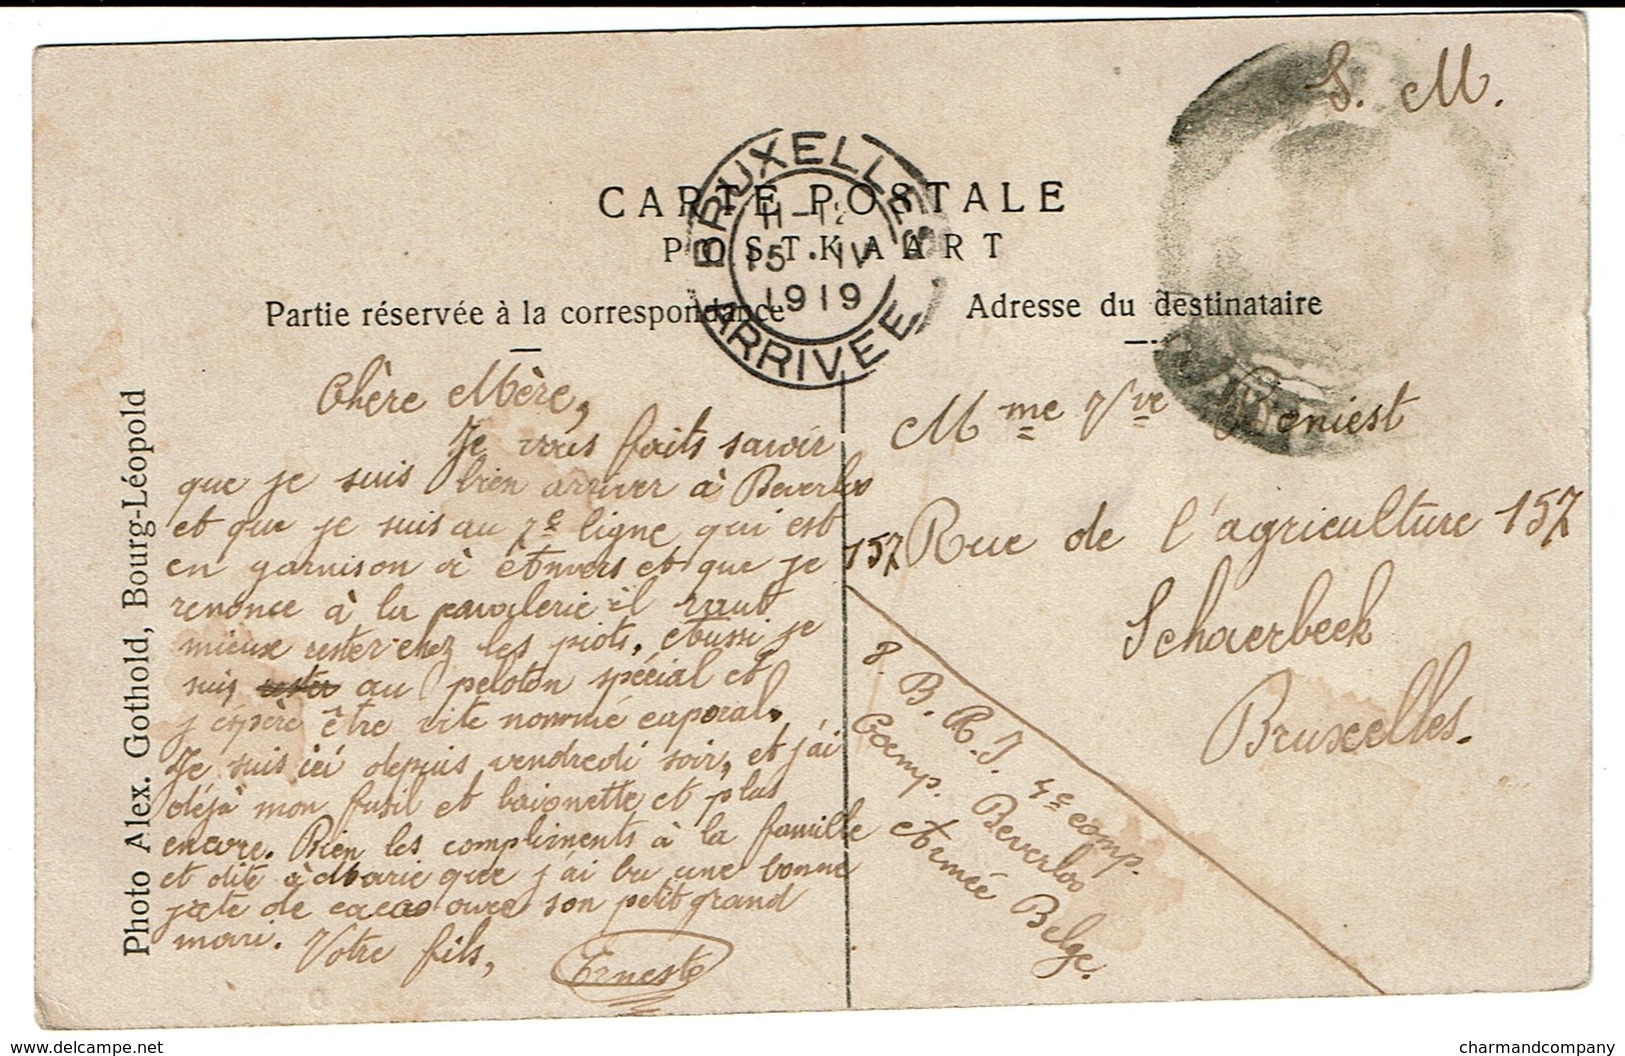 S. M.
BRUXELLES
11-12
15 · IV
1919
ARRIVEE
CARTE POSTALE
POSTKAART
Partie réservée à la correspondance
Adresse du destinataire
Photo Alex. Gothold, Bourg-Léopold
Chère Mère,
Je vous faits savoir
que je suis bien arriver à Beverloo
et que je suis au 7e ligne qui est
en garnison à Anvers et que je
renonce à la cavalerie il vaut
mieux rester chez les piots, Aussi je
suis rester au peloton spécial et
j'espère être vite nommé caporal.
Je suis ici depuis vendredi soir, et j'ai
déjà mon fusil et baionette et plus
encore. Bien les compliments à la famille
et dite à Marie que j'ai bu une bonne
jate de cacao avec son petit grand
mari. Votre fils,
Ernest
Mme Vve Boniest
157 Rue de l'agriculture 157
Schaerbeek
Bruxelles.
8. B. R. I. 4e comp.
Camp. Beverloo
Armée Belge.
www.delcampe.net
charmandcompany